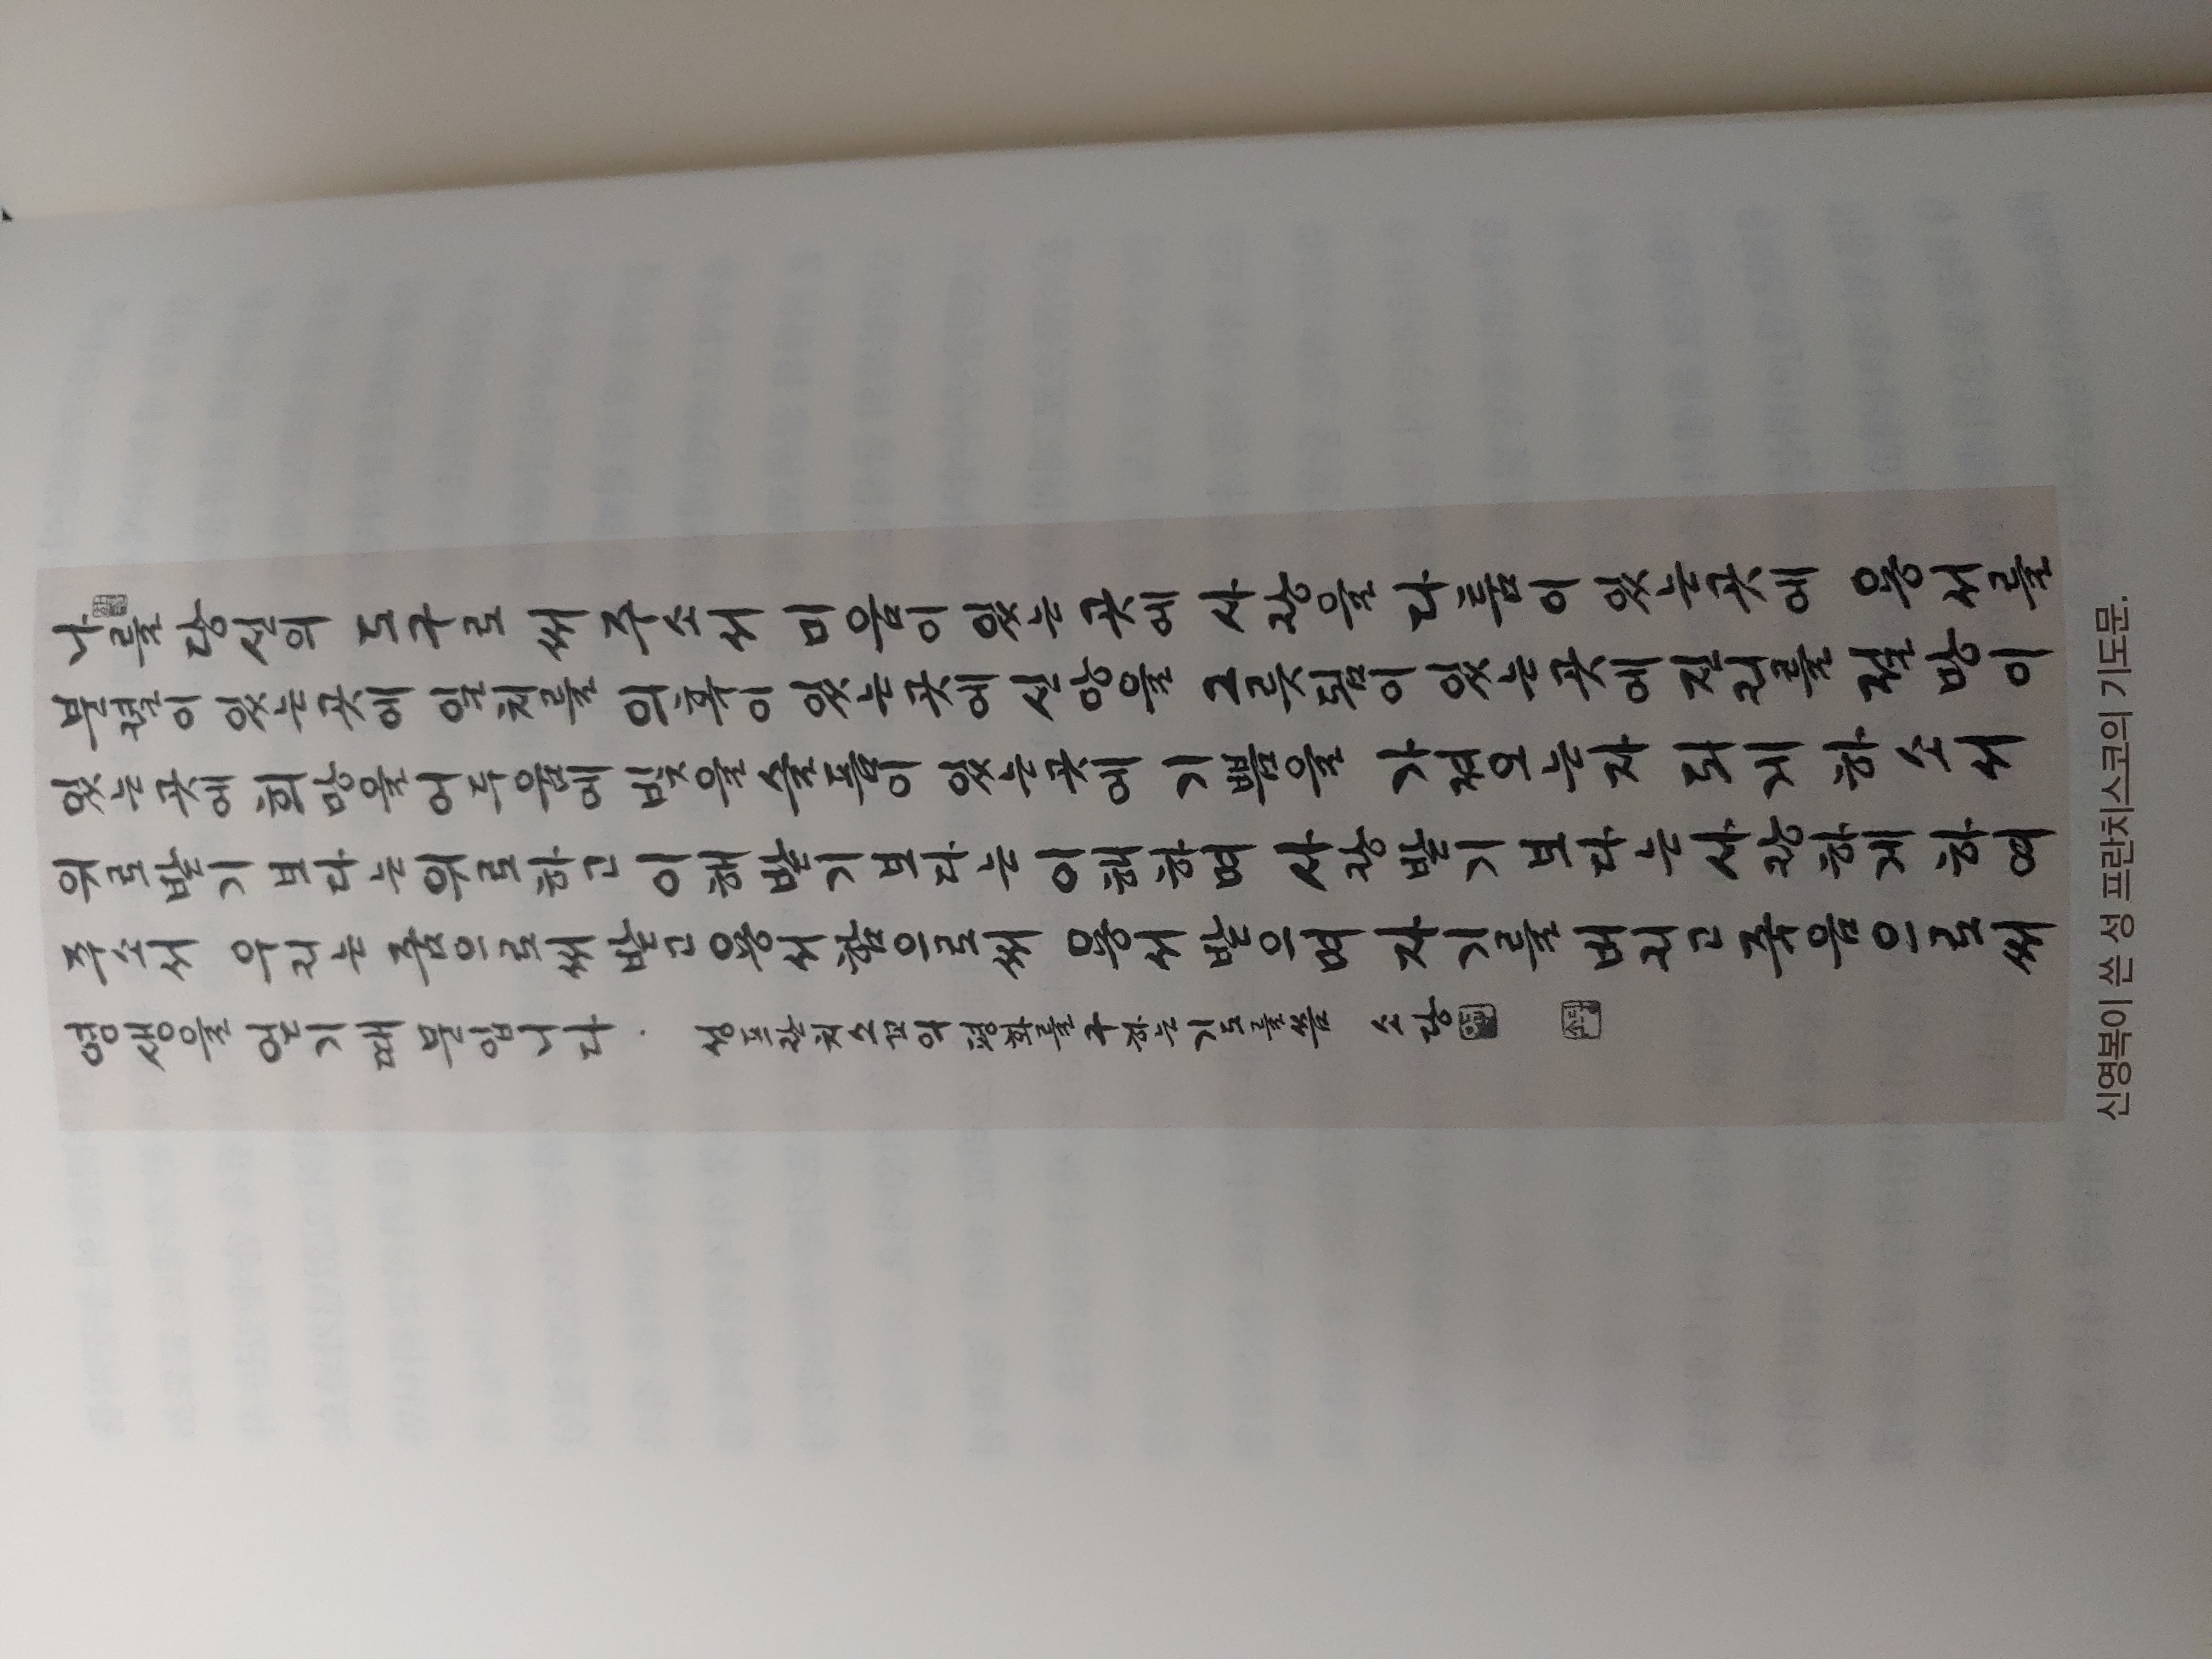 나를 당신의 도구로 써 주소서 미움이 있는 곳에 사랑을 다툼이 있는곳에 용서를
분렬이 있는곳에 일치를 의혹이 있는곳에 신앙을 그릇됨이 있는곳에 진리를 절망이
있는곳에 희망을 어두움에 빛을 슬픔이 있는곳에 기쁨을 가져오는자 되게 하소서
위로받기 보다는 위로하고 이해받기보다는 이해하며 사랑받기 보다는 사랑하게 하여
주소서 우리는 줌으로써 받고 용서함으로써 용서받으며 자기를 버리고 죽음으로써
영생을 얻기때문입니다. 성프란치스꼬의 평화를 구하는기도를 씀 소당
신영복이 쓴 성 프란치스코의 기도문.